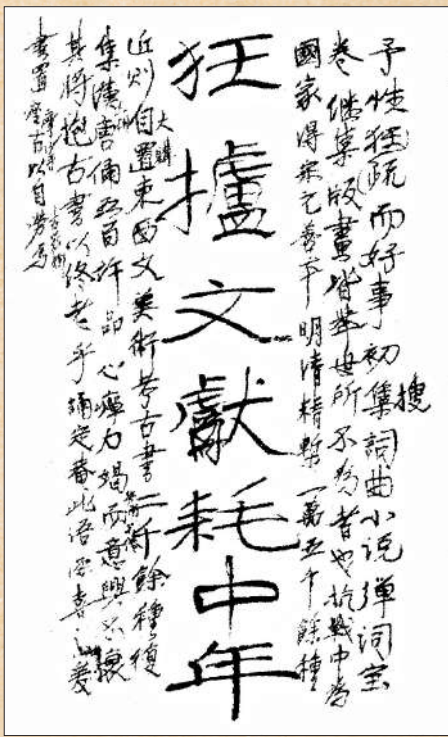 予性狂疏而好事初搜集詞曲小说弹词宝
卷继集版畫皆举世所不为者也抗戰中为
國家得宋元善本明清精槧一萬五千餘種
狂攎文獻耗中年
近则大購自置東西文美術考古書二千餘種復
集漢唐俑五百許品心瘁力竭而意興不衰
其将抱古書以终老乎誦定菴此语
書置座右以自劳焉